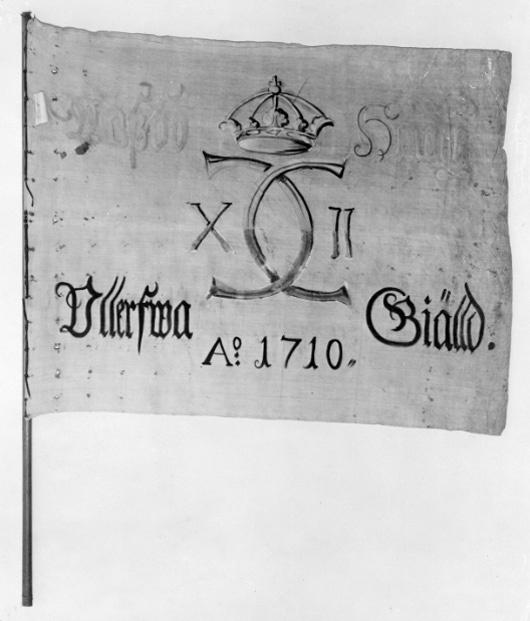 X II
Ullerfwa Giälld.
Aº 1710.